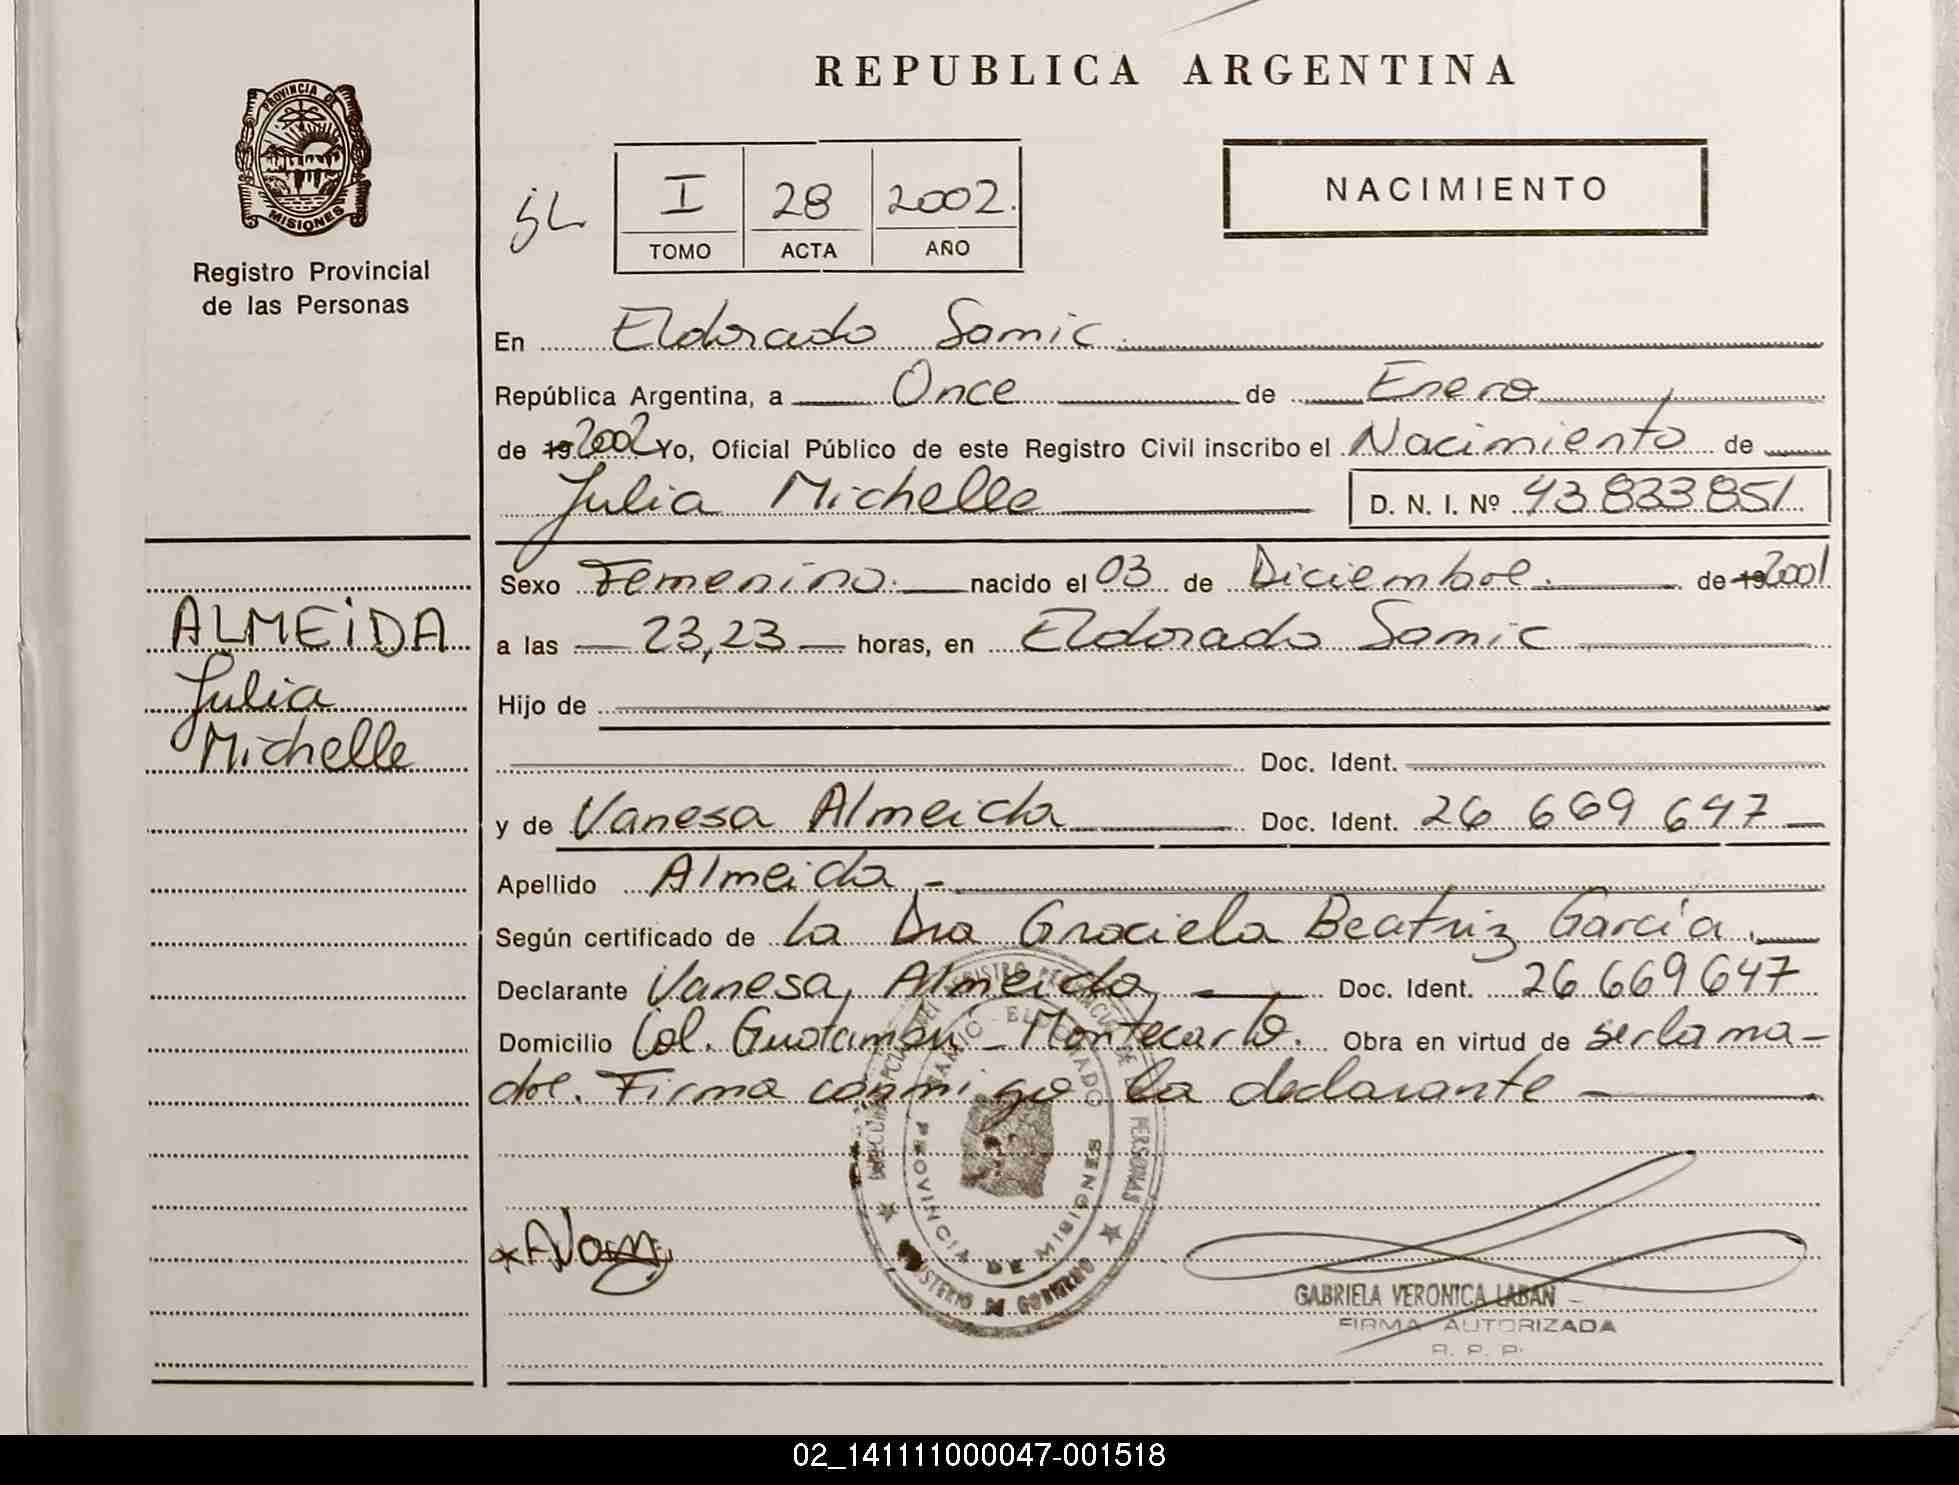 REPUBLICA ARGENTINA
PROVINCIA DE
MISIONES
Registro Provincial
de las Personas
I 28 2002.
TOMO ACTA AÑO
NACIMIENTO
En Eldorado Samic.
República Argentina, a Once de Enero
de 19 2002 Yo, Oficial Público de este Registro Civil inscribo el Nacimiento de
Julia Michelle D. N. I. Nº 43.833.851
Sexo Femenino. nacido el 03 de Diciembre. de 19 2001
a las 23,23 horas, en Eldorado Samic
Hijo de
Doc. Ident.
y de Vanesa Almeida Doc. Ident. 26 669 647
Apellido Almeida.-
Según certificado de la Dra Graciela Beatriz García.
Declarante Vanesa Almeida Doc. Ident. 26 669 647
Domicilio Col. Guatambú - Montecarlo. Obra en virtud de ser la ma-
dre. Firma conmigo la declarante
ALMEIDA
Julia
Michelle
ELDORADO
PROVINCIA DE MISIONES
MINISTERIO DE GOBIERNO
GABRIELA VERONICA LABAN
FIRMA AUTORIZADA
R. P. P.
02_141111000047-001518